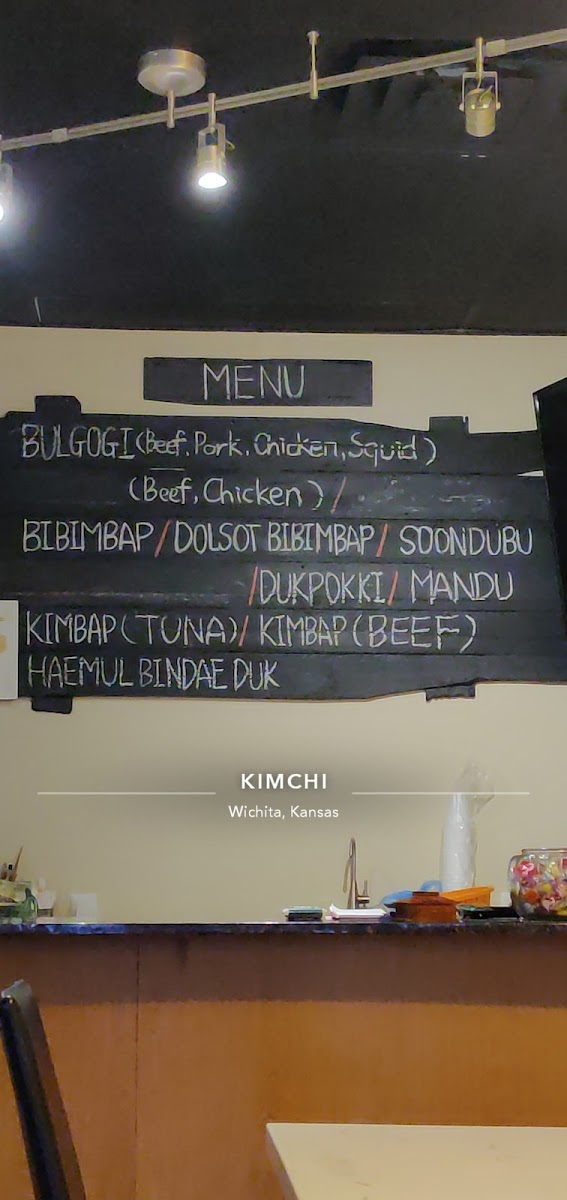 MENU
BULGOGI (Beef, Pork, Chicken, Squid)
(Beef, Chicken) /
BIBIMBAP / DOLSOT BIBIMBAP / SOONDUBU
/ DUKPOKKI / MANDU
KIMBAP (TUNA) / KIMBAP (BEEF)
HAEMUL BINDAE DUK
KIMCHI
Wichita, Kansas